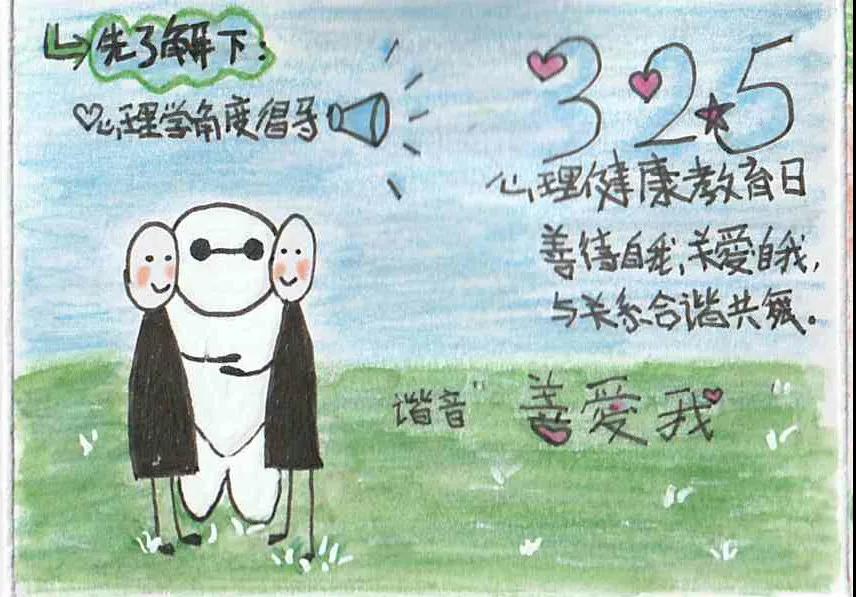 先了解下：
心理学角度得哥
325
心理健康教育日
善待自我、关爱自我，
与关系合谐共舞。
谐音“善爱我